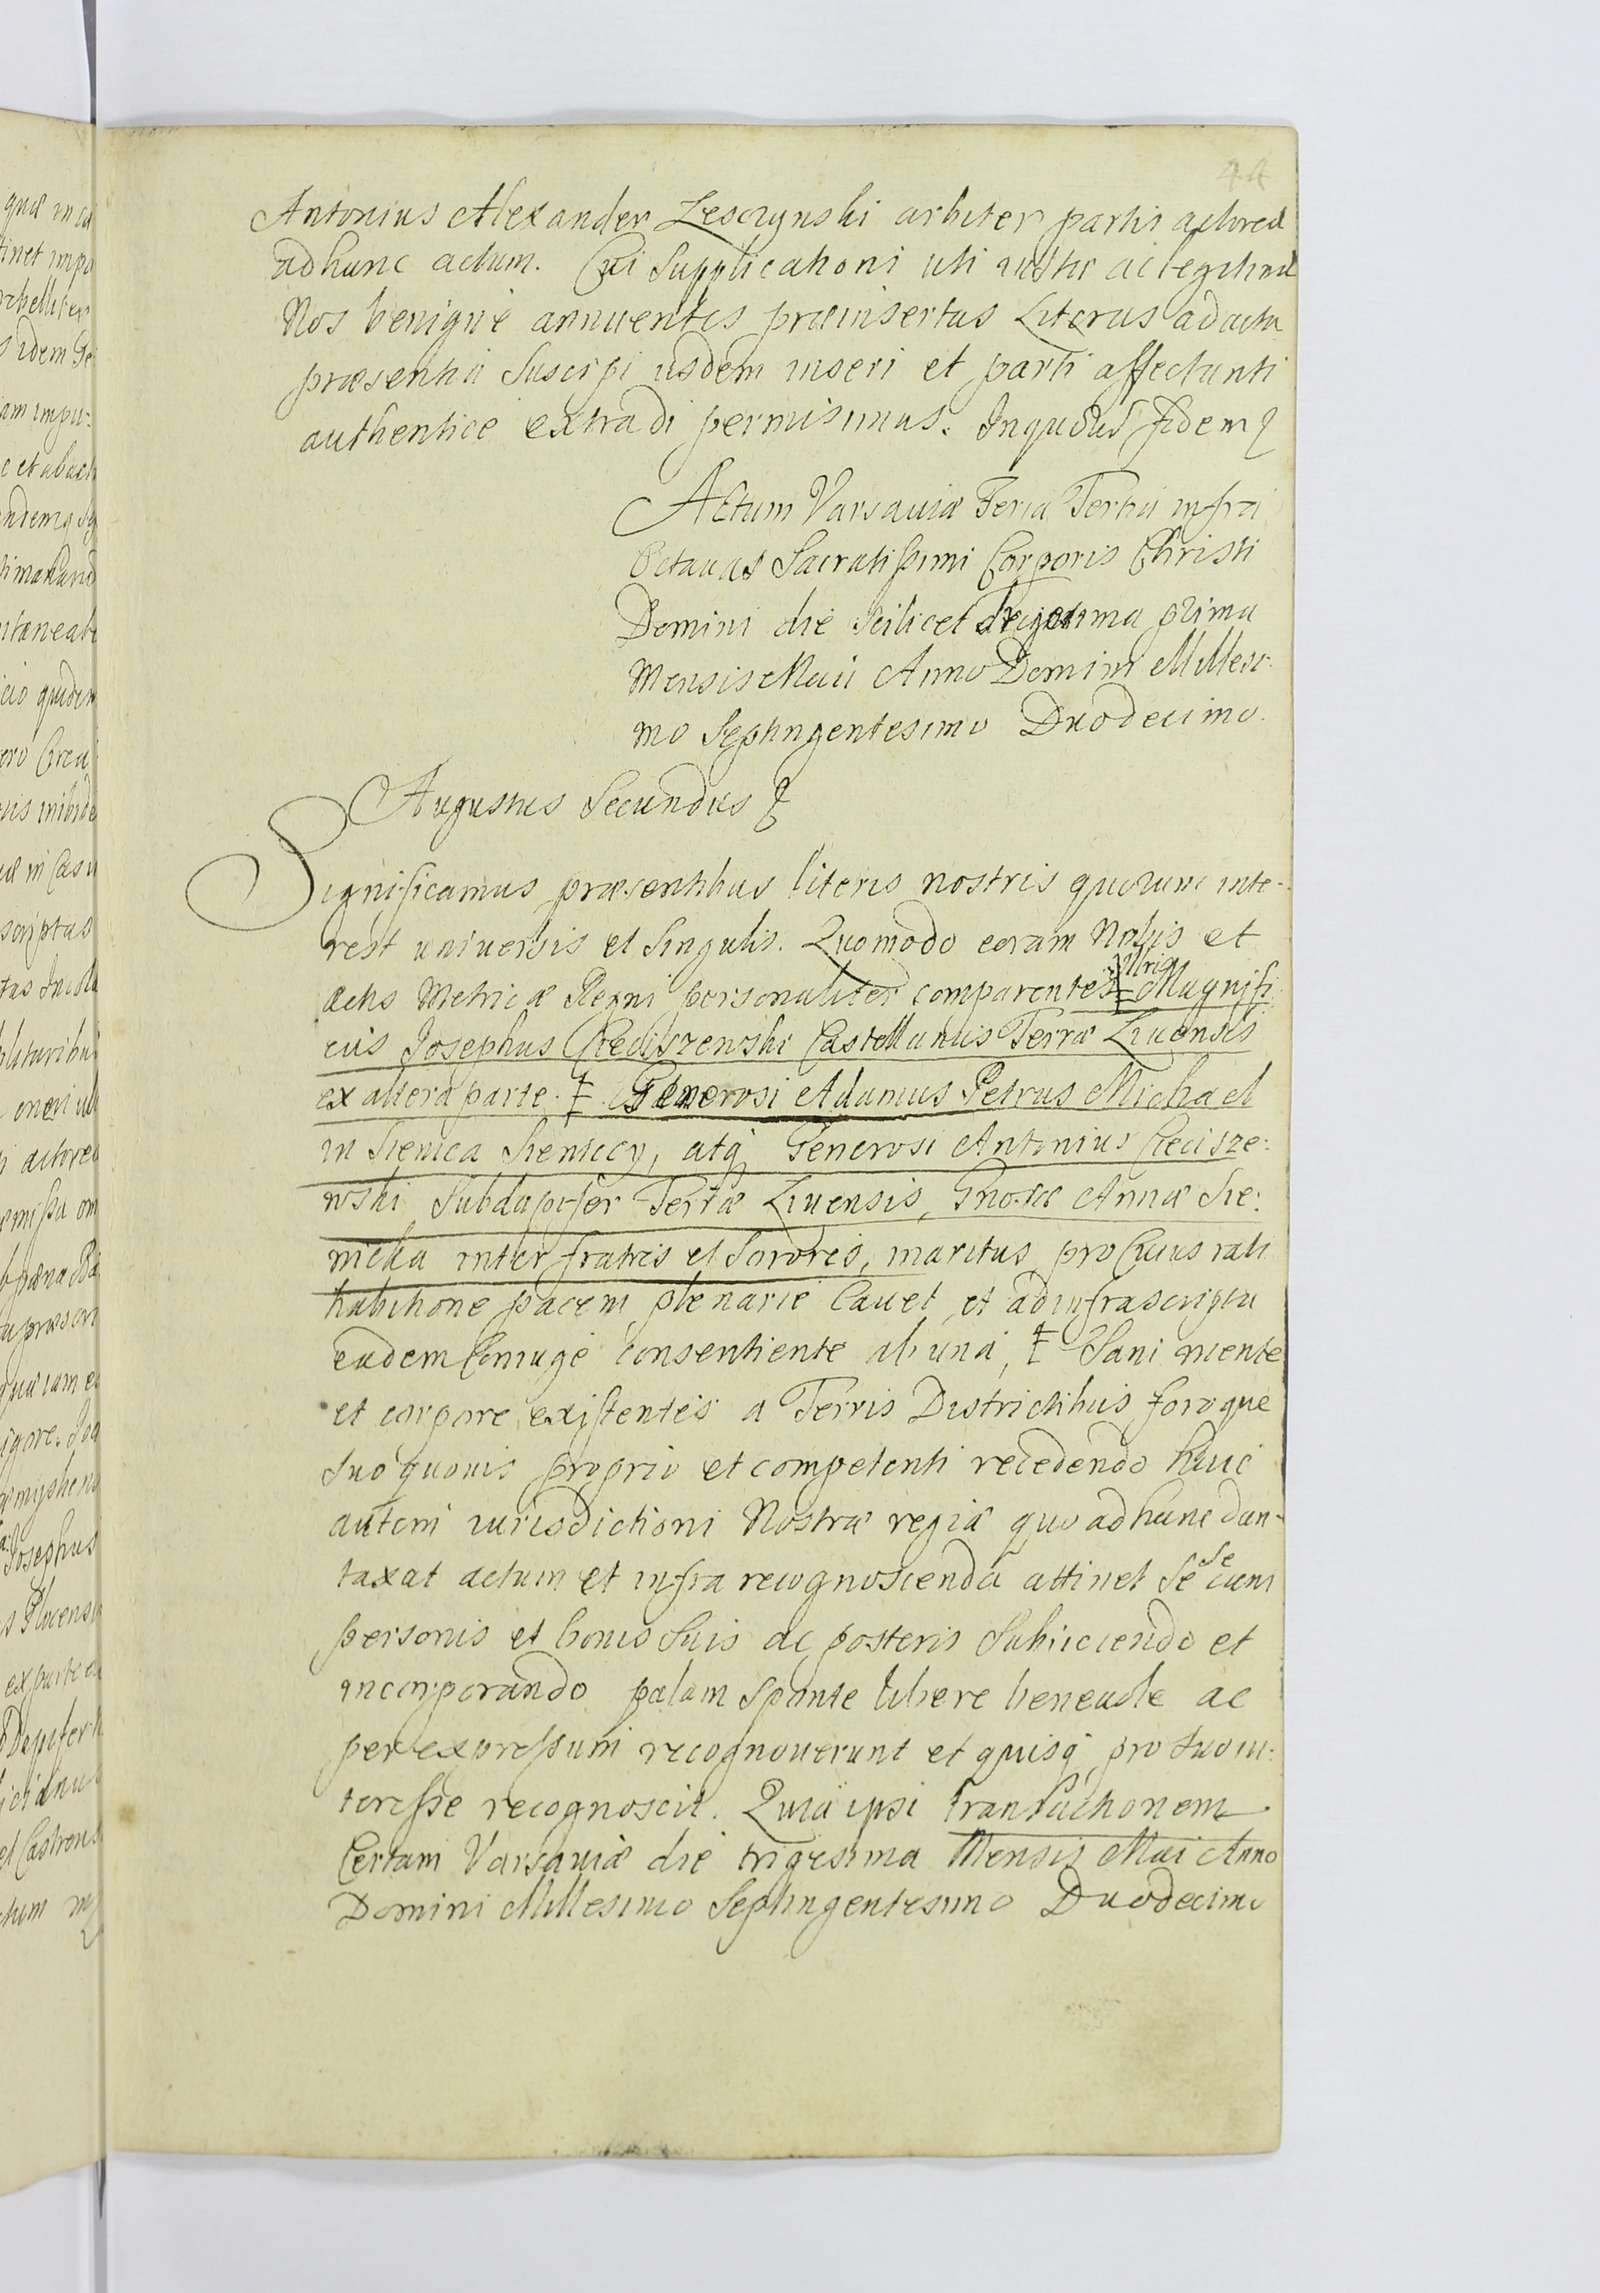 44
Antonius Alexander Lesczynski arbiter partis actoreæ
ad hunc actum. Cui Supplicationi uti iustæ ac legitimæ
Nos benigne annuentes præinsertas Literas ad acta
præsentia Suscipi iisdem inseri et parti affectanti
authentice extradi permisimus. In quorus fidem
Actum Varsaviæ Feria Tertia infra
Octavas Sacratissimi Corporis Christi
Domini die Scilicet Trigesima prima
Mensis Maii Anno Domini Millesi-
mo Septingentesimo Duodecimo.
Augustus Secundus
Significamus præsentibus literis nostris quorum inte-
rest universis et Singulis. Quomodo coram Nobis et
actis Metricæ Regni personaliter comparentes Magnifi
cus Josephus Cieciszewski Castellanus Terræ Livensis
ex altera parte. Generosi Adamus Petrus Michael
in Sienica Sieniccy, atq Generosi Antonius Ciecisze:
wski Subdapifer Terræ Livensis, Gnosæ Annæ Sie:
nicka inter fratres et Sorores, maritus pro Cuius rati
habitione pacem plenarie Cavet, et ad infrascripta
eadem Coniuge consentiente ab una, Sani mente
et corpore existentes a Terris Districtibus foroque
Suo quovis proprio et competenti recedendo huic
autem iurisdictioni Nostræ regiæ quo ad hunc dun-
taxat actum et infra recognoscenda attinet Se se cum
personis et bonis Suis ac posteris Subiiciendo et
incorporando palam Sponte libere benevole ac
per expressum recognoverunt et quisq pro Suo in:
teresse recognoscit. Quia ipsi transactionem
Certam Varsaviæ die trigesima Mensis Mai Anno
Domini Millesimo Septingentesimo Duodecimo